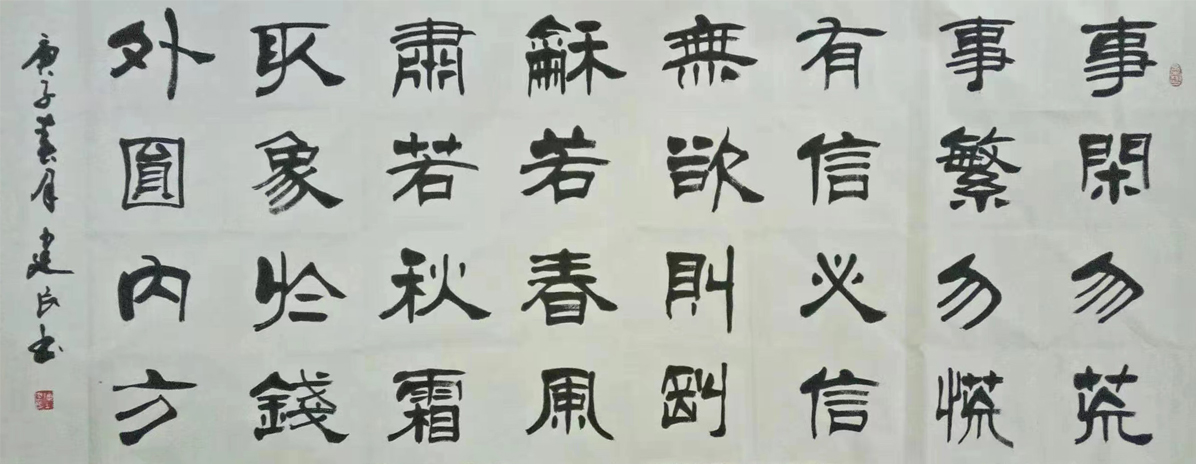 事閑勿荒
事繁勿慌
有信必信
無欲則剛
龢若春風
肅若秋霜
取象於錢
外圓內方
庚子月建民书